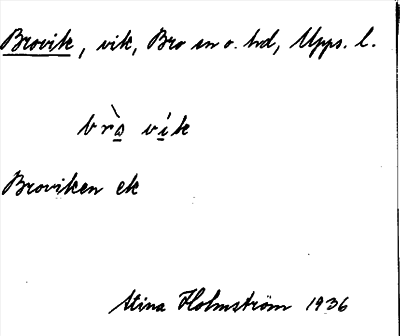 Brovik, vik, Bro sn o. hd, Upps. l.
br̀o̲ ví̲k
Broviken ek
Stina Holmström 1936